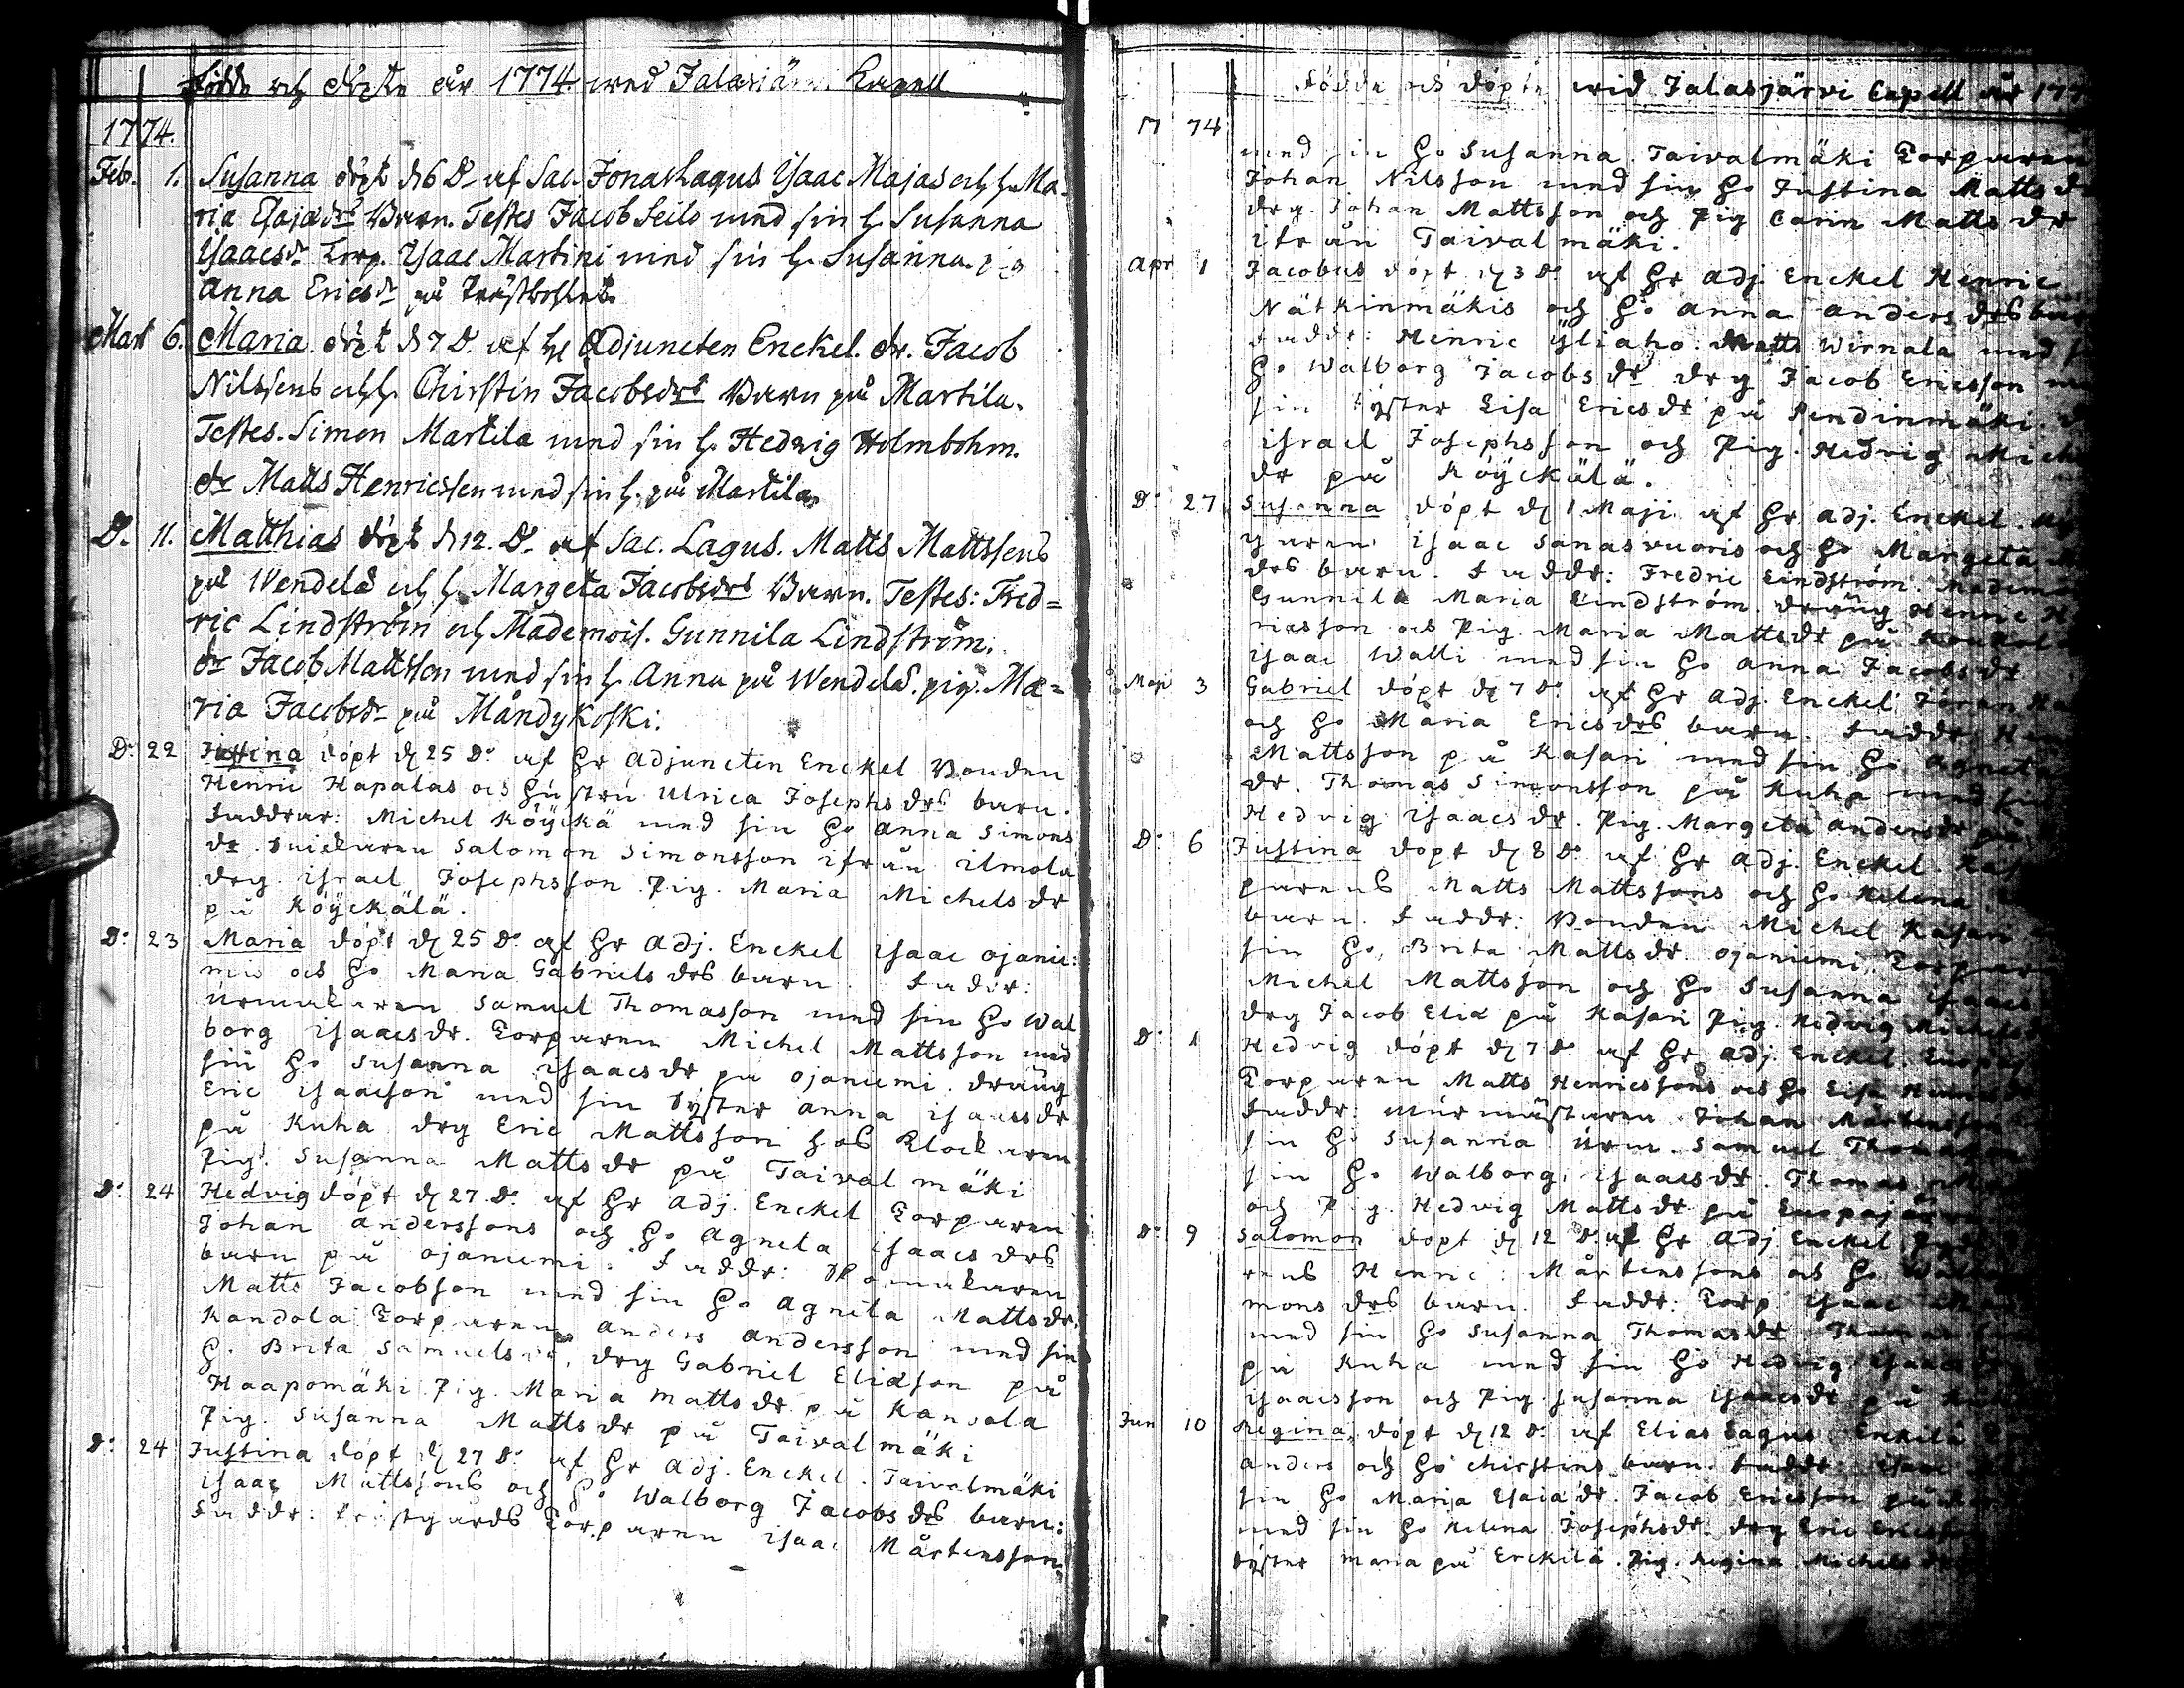 Födde och döpte år 1774 wed Jalasjärvi Capell
1774.
Feb. 1. Susanna döpt d 6 D. af Sac. Jonas Lagus Ysaac Majas och h. Ma-
ria Esaiædrs Barn. Testes Jacob Seilo med sin h. Susanna
Ysaacsdr Torp. Ysaac Martini med sin h. Susanna. pig
Anna Ericsdr på
Mart 6. Maria döpt d 7 D. af Hr Adjuncten Enckel. dr. Jacob
Nilssens och h. Chirstin Jacobsdrs Barn på Martila.
Testes. Simon Martila med sin h. Hedvig Holmbohm.
dr Matts Henricssen med sin h. på Martila.
D. 11. Matthias döpt d 12. D. af Sac. Lagus. Matts Mattssens
på Wendelä och h. Margeta Jacobsdrs Barn. Testes: Fred=
ric Lindström och Mademois. Gunnila Lindström.
dr Jacob Mattssen med sin h. Anna på Wendelä. pig. Ma=
ria Jacobsdr på Måndykoski.
Do 22 Justina döpt d 25 Do af Hr Adjuncten Enckel Bonden
Henric Hapalas och Hustru Ulrica Josephs drs barn.
Faddrar: Michel Köyckä med sin Ho Anna Simons
dr. Salomon Simonsson ifrån ilmola
drg. israel Josephsson. Pig. Maria Michels dr
på Köyckälä.
Do 23 Maria döpt d 25 Do af Hr Adj. Enckel isaac Ojanie:
mis och Ho Maria Gabriels drs barn. Faddr:
Urmakaren Samuel Thomasson med sin Ho Wal
borg isaacsdr. Torparen Michel Mattsson med
sin Ho Susanna isaacsdr på Ojaniemi. dräng
Eric isaacson med sin syster Anna isaacsdr
på Kuha drg Eric Mattsson hos Klockaren
Pig. Susanna Mattsdr på Taivalmäki
Do 24 Hedvig döpt d 27 Do af Hr Adj. Enckel Torparen
Johan Anderssons och Ho Agneta isaacs drs
barn på Ojaniemi. Faddr:
Matts Jacobson med sin Ho Agneta Mattsdr.
Kandola Torparen Anders Andersson med sin
H. Brita Samuelsdr. drg Gabriel Eliæson på
Haapomäki. Pig. Maria Matts dr på Kandola
Pig. Susanna Mattsdr på Taivalmäki
Do 24 Justina döpt d 27 Do af Hr Adj. Enckel. Taivalmäki
isaac Mattssons och Ho Walborg Jacobs drs barn:
Faddr: Prästgårds Torparen isaac Mårtensson
Födde och döpte wid Jalasjärvi Capell år 177
17 74
med sin Ho Susanna. Taivalmäki Torparen
Johan Nilsson med sin Ho Justina Matts d
drg. Johan Mattsson och Pig Carin Matts dr
ifrån Taivalmäki.
Apr 1 Jacobus döpt d 3 Do af Hr Adj. Enckel Henric
Nätkinmäkis och Ho Anna Anders drs bar
Faddr: Henric Yliaho. Matts Wirnala med s
Ho Walborg Jacobs dr drg Jacob Ericsson me
sin syster Lisa Ericsdr på Pendinmäki.
israel Josephsson och Pig. Hedvig Mich
dr på Köyckälä.
Do 27 Susanna döpt d 1 Maji af Hr Adj. Enckel.
isaac Sanasvuoris och Ho Margeta
drs barn. Faddr: Fredric Lindström. Madem
Gunnila Maria Lindström. dräng Henric H
ricsson och Pig. Maria Matts dr på
isaac Walli med sin Ho Anna Jacobsdr
Maji 3 Gabriel döpt d 7 Do af Hr Adj. Enckel Jöran
och Ho Maria Ericsdrs barn. Faddr:
Mattsson på Kasari med sin Ho Agneta
dr. Thomas Simonsson på Kuha med sin
Hedvig isaacsdr. Pig. Margeta Andersdr på
Do 6 Justina döpt d 8 Do af Hr Adj. Enckel. Kas
parens Matts Mattssons och Ho Helena
barn. Faddr: Bonden Michel Kasari
sin Ho Brita Mattsdr. Ojaniemi Torpare
Michel Mattsson och Ho Susanna isaacs
drg Jacob Eliæ på Kasari Pig. Hedvig Michelsd
Do 1 Hedvig döpt d 7 Do af Hr Adj. Enckel
Torparen Matts Henricssons och Ho Lisa
Faddr: murmästaren Johan Mårtensson
sin Ho Susanna Samuel Thomasson
sin Ho Walborg isaacsdr. Thomas
och Pig. Hedvig Mattsdr på
Do 9 Salomon döpt d 12 Do af Hr Adj Enckel
rens Henric Mårtenssons och Ho
mons drs barn. Faddr: Torp isaac
med sin Ho Susanna Thomasdr Thomas
på Kuha med sin Ho Hedvig isaacs
isaacsson och Pig. Susanna isaacsdr på
Jun 10 Regina, döpt d 12 Do af Elias Lagus. Erckilä
Anders och Ho Chirstins barn. Faddr: isaac
sin Ho Maria Esaiæ dr. Jacob Ericsson på
med sin Ho Helena Josephsdr. drg Eric Ericss
syster Maria på Erckilä. Pig. Regina Michels dr